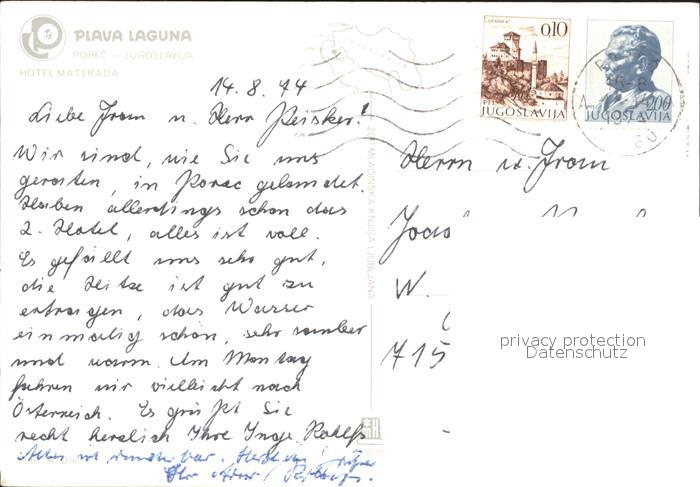 PLAVA LAGUNA
POREČ – JUGOSLAVIJA
HOTEL MATERADA
GRADAČAC
0,10
JUGOSLAVIJA
2,00
JUGOSLAVIJA
14.8.74
Liebe Frau u. Herr Peisker!
Wir sind, wie Sie uns
geraten, in Porec gelandet.
Haben allerdings schon das
2. Hotel, alles ist voll.
Es gefällt uns sehr gut,
die Hitze ist gut zu
ertragen, das Wasser
einmalig schön, sehr sauber
und warm. Am Montag
fahren wir vielleicht nach
Österreich. Es grüßt Sie
recht herzlich Ihre Inge Rohlfs
Alles ist wunderbar. Herzliche Grüße
Ihr
ZALOŽBA MLADINSKA KNJIGA LJUBLJANA
Herrn u. Frau
W.
715
privacy protection
Datenschutz